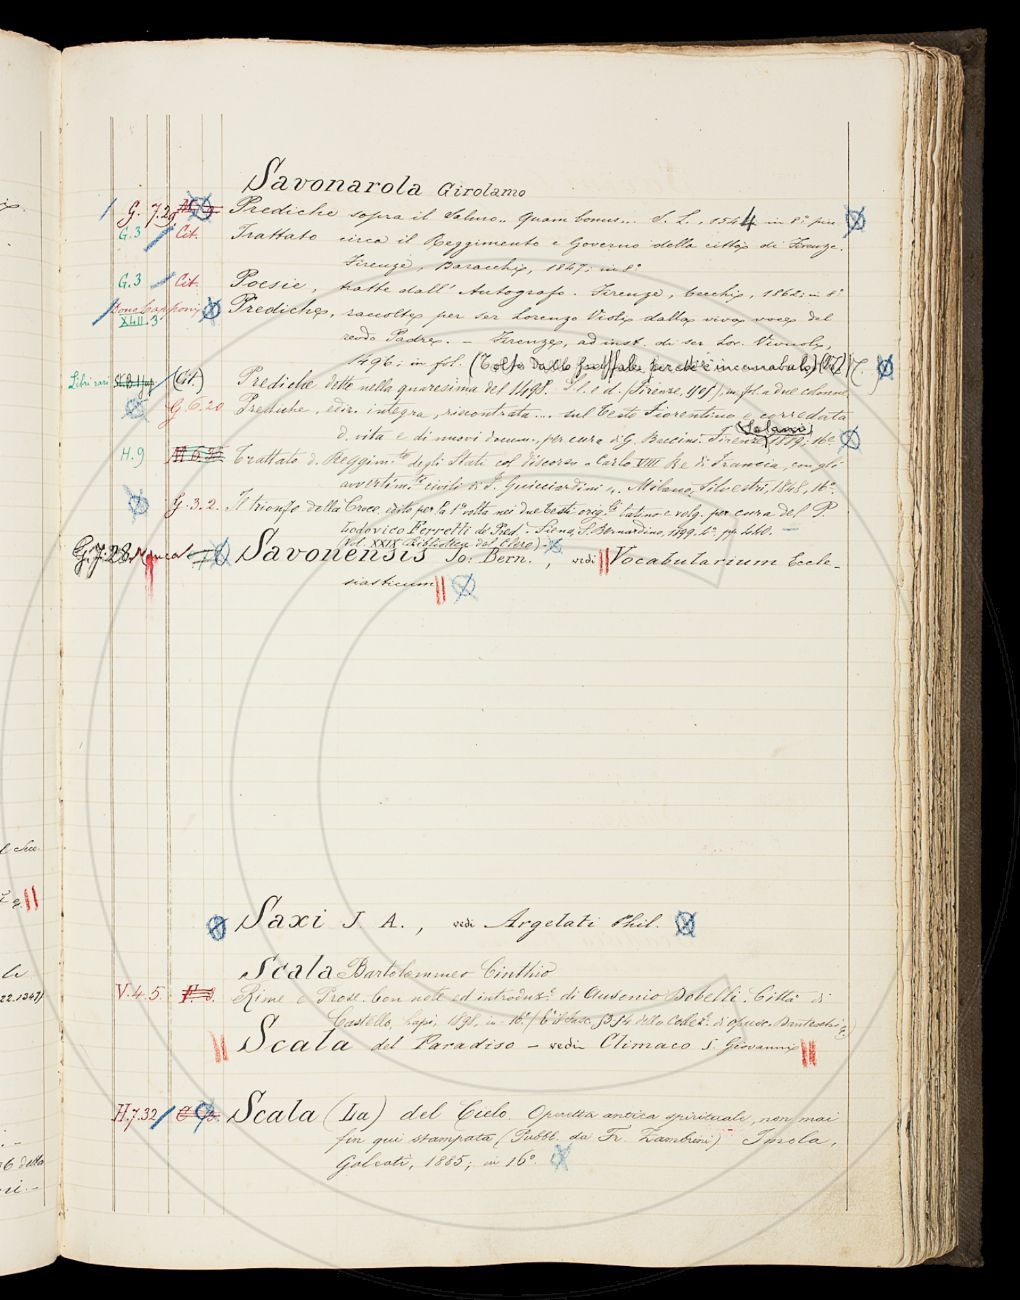 Savonarola Girolamo
G. 7.29 Prediche sopra il Salmo.. Quam bonus... S. L., 1544 in 8° picc.
G.3 Cit. Trattato circa il Reggimento e Governo della città di Firenze.
Firenze, Baracchi, 1847; in 8°
G.3 Cit. Poesie, tratte dall' Autografo. Firenze, Cecchi, 1862; in 8°
XLII.3 Prediche, raccolte per ser Lorenzo Violi dalla viva voce del
rev.do Padre. – Firenze, ad inst. di ser Lor. Vivuoli,
1496; in fol.
Libri rari (Cit.) Prediche dette nella quaresima del 1498. S. l. e d. (Firenze, ), in fol. a due colonne.
G.6.20 Prediche, ediz. integra, riscontrata... sul Testo Fiorentino e corredata
d. vita e di nuovi docum., per cura di G. Baccini. Firenze, 1889; 16°
H.9 Trattato d. Reggim.to degli Stati col discorso a Carlo VIII Re di Francia, con gli
avvertim.ti civili di F. Guicciardini . Milano, Silvestri, 1848, 16°.
G.3.2. Il trionfo della Croce, edito per la 1ª volta nei due testi orig.li latino e volg. per cura del P.
Lodovico Ferretti de' Pred. Siena, S. Bernardino, 1899. 
(Vol. XXIX Biblioteca del Clero).
G.7.28 Manca Savonensis Jo: Bern., vedi Vocabularium Eccle-
siasticum
Saxi J. A., vedi Argelati Phil.
Scala Bartolommeo Cinthio
V.4.5 Rime e Prose. Con note ed introduz.e di Ausonio Dobelli. Città di
Castello, Lapi, 1898, in-16°. (È il fasc. 53-54 della Collez.e di opusc. Danteschi)
Scala del Paradiso – vedi Climaco S. Giovanni
H.7.32 Scala (La) del Cielo Operetta antica spirituale, non mai
fin qui stampata, (Pubbl. da Fr. Zambrini) Imola,
Galeati, 1885; in 16°.